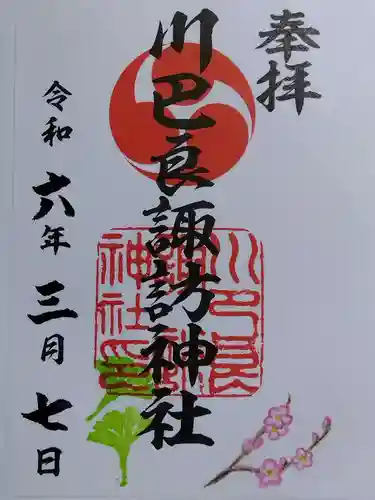 奉拝
川巴良諏訪神社
令和六年三月七日
川巴良
諏訪
神社印